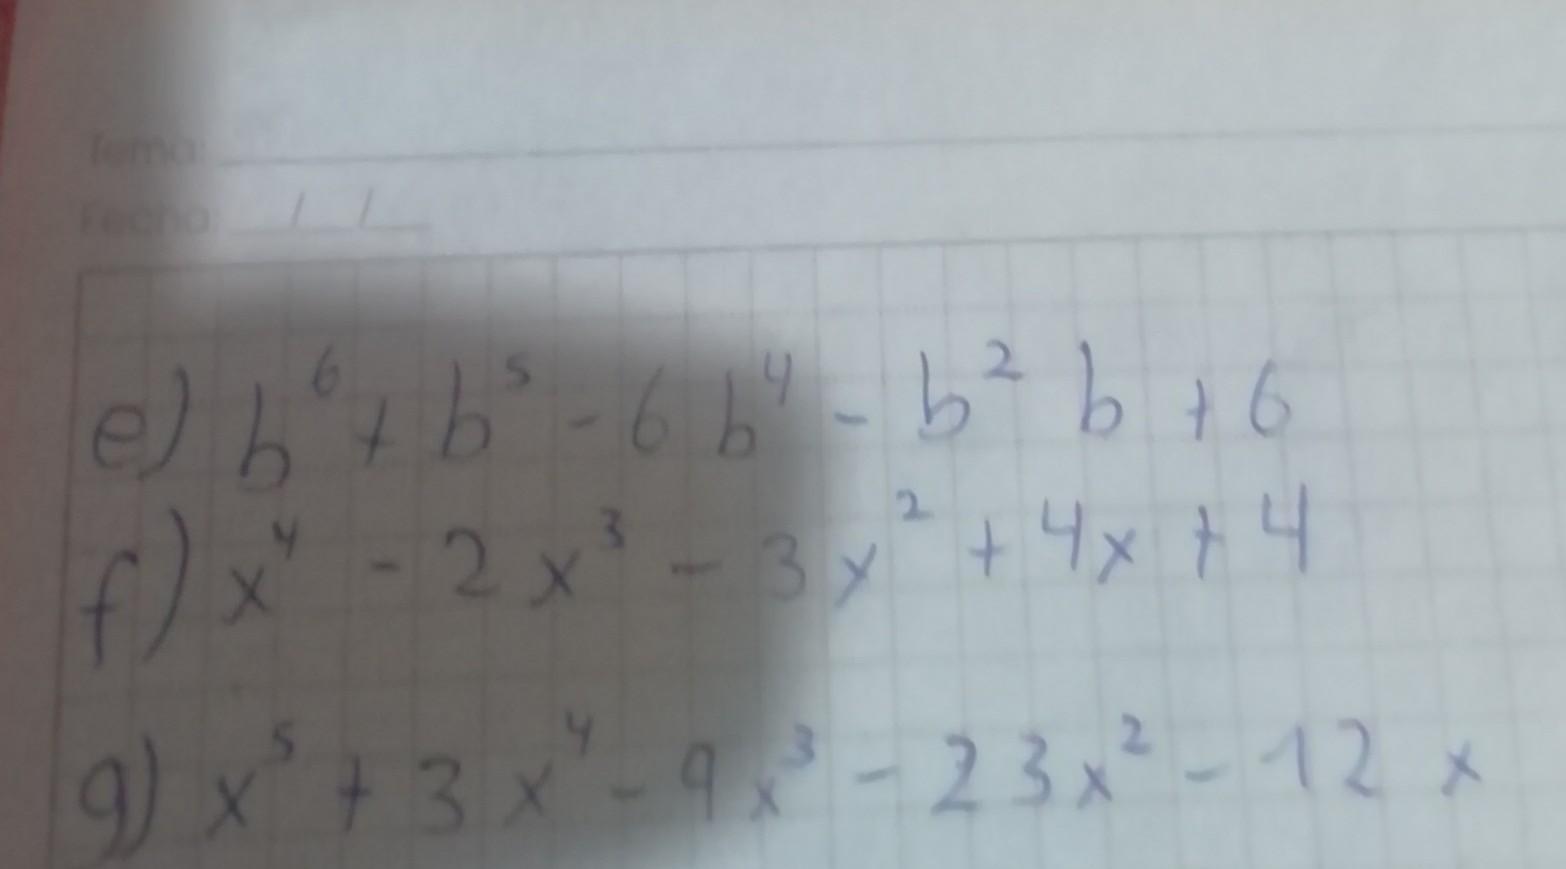 Tema:
Fecha: / /
e) b⁶ + b⁵ - 6b⁴ - b² b + 6
f) x⁴ - 2x³ - 3x² + 4x + 4
g) x⁵ + 3x⁴ - 9x³ - 23x² - 12x